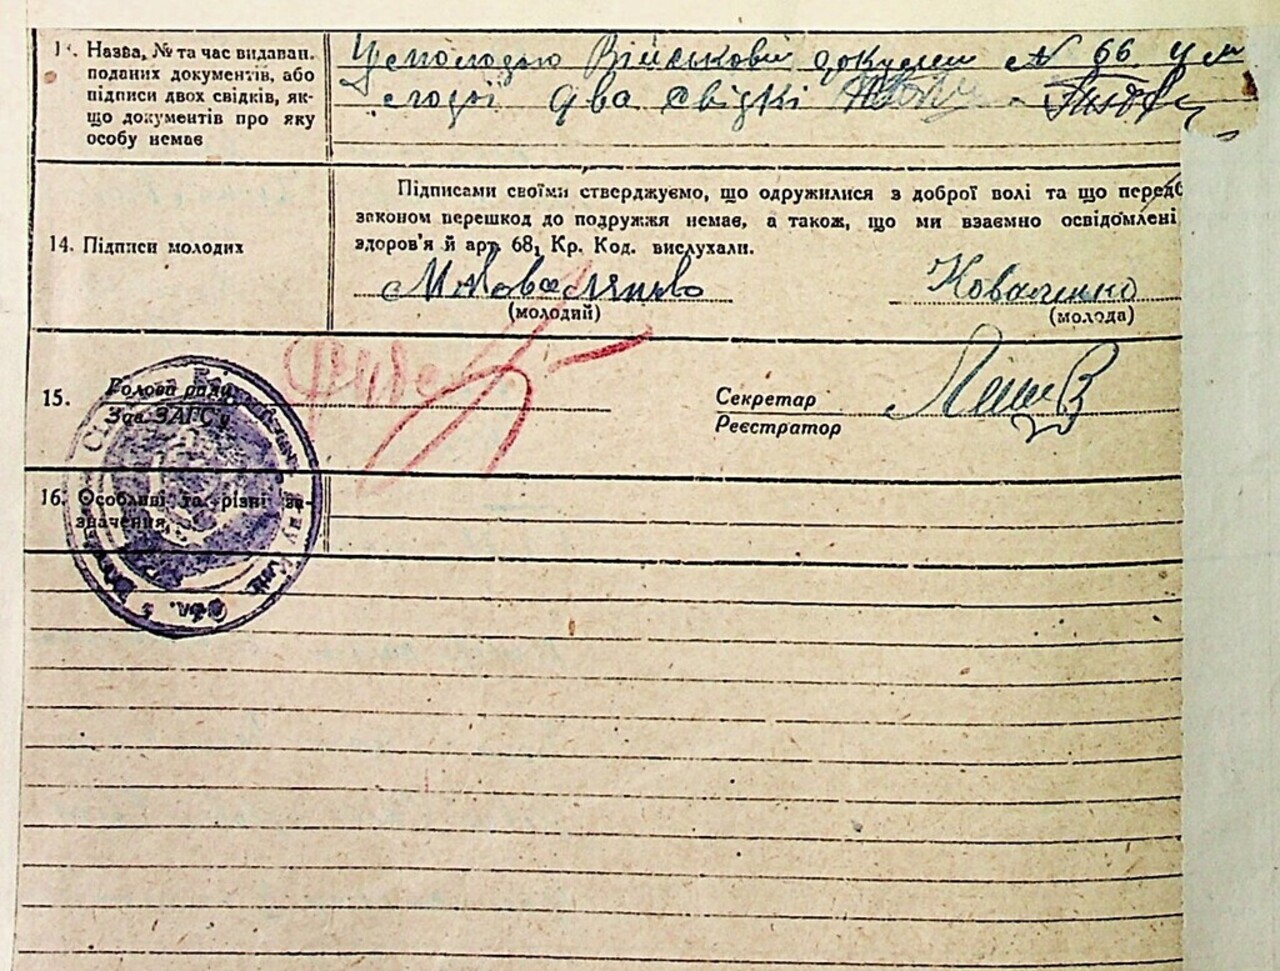 Назва, № та час видаван.
поданих документів, або
підписи двох свідків, як-
що документів про яку
особу немає
Військовий докумен № 66 у м
два свідкі
14. Підписи молодих
Підписами своїми стверджуємо, що одружилися з доброї волі та що передб
законом перешкод до подружжя немає, а також, що ми взаємно освідомлені
здоров'я й арт. 68, Кр. Код. вислухали.
Коваленко
(молодий)
(молода)
15.
Голова ради
Зав. ЗАГС'у
Секретар
Реєстратор
16. Особливі та різні за-
значення